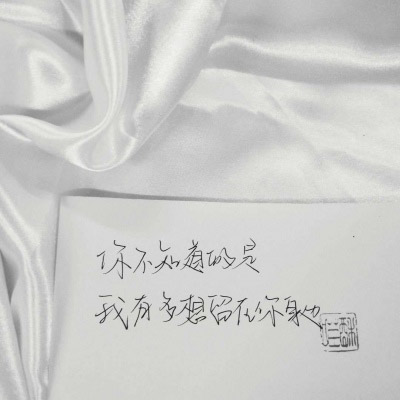 你不知道的是
我有多想留在你身边